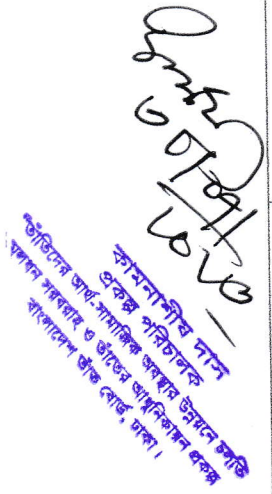 কামনাশীষ দাস
প্রকল্প পরিচালক
"তাঁতিদের আর্থ-সামাজিক অবস্থার উন্নয়নে চলতি
মূলধন সরবরাহ ও তাঁতের আধুনিকায়ন প্রকল্প
বাংলাদেশ তাঁত বোর্ড, ঢাকা।